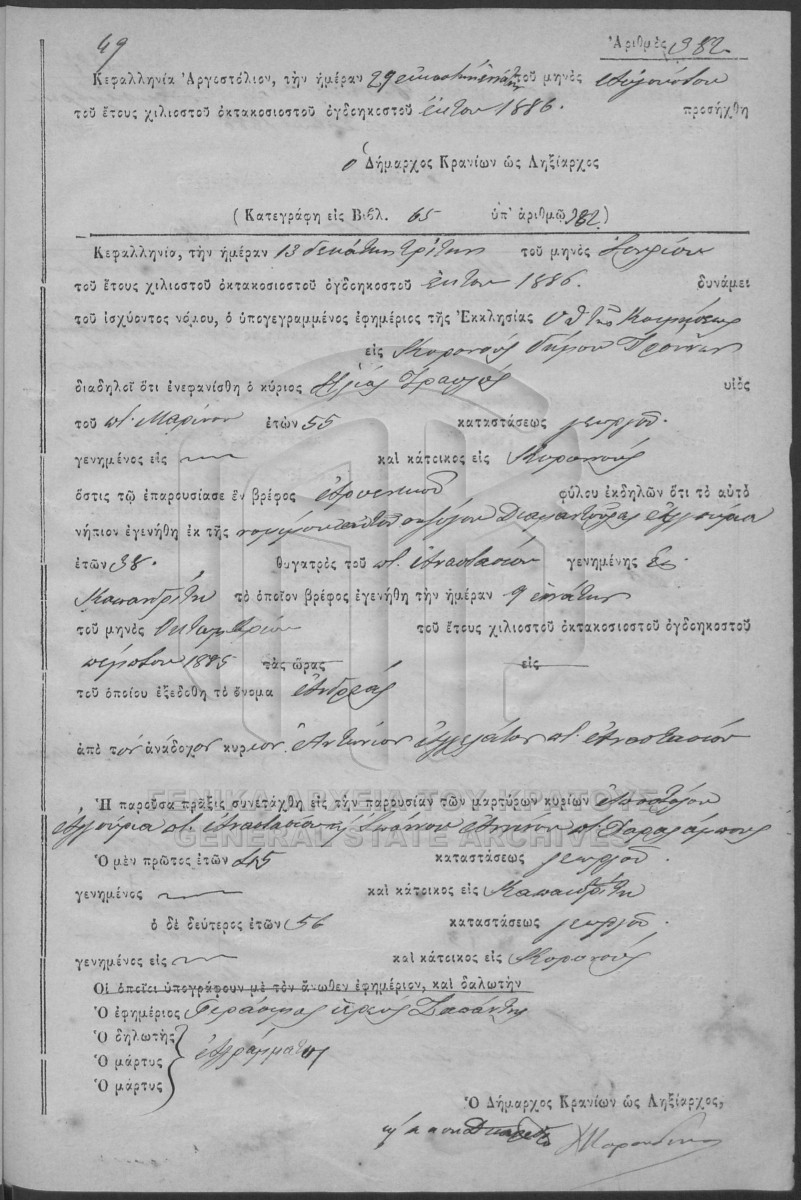 49
Ἀριθμὸς 982.
Κεφαλληνία Ἀργοστόλιον, τὴν ἡμέραν 29 εἰκοστὴν ἐνάτην τοῦ μηνὸς Αὐγούστου
τοῦ ἔτους χιλιοστοῦ ὀκτακοσιοστοῦ ὀγδοηκοστοῦ ἕκτου 1886. προσήχθη
ὁ Δήμαρχος Κρανίων ὡς Ληξίαρχος
(Κατεγράφη εἰς Βιβλ. 65 ὑπ' ἀριθμῷ 982.)
Κεφαλληνία, τὴν ἡμέραν 13 δεκάτην τρίτην τοῦ μηνὸς
τοῦ ἔτους χιλιοστοῦ ὀκτακοσιοστοῦ ὀγδοηκοστοῦ ἕκτου 1886. δυνάμει
τοῦ ἰσχύοντος νόμου, ὁ ὑπογεγραμμένος ἐφημέριος τῆς Ἐκκλησίας Κοιμήσεως
εἰς Κορωνούς Δήμου Πρόννων
διαδηλοῖ ὅτι ἐνεφανίσθη ὁ κύριος Ἠλίας υἱὸς
τοῦ π. Μαρίνου ἐτῶν 55 καταστάσεως γεωργοῦ.
γενημένος εἰς καὶ κάτοικος εἰς Κορωνούς
ὅστις τῷ ἐπαρουσίασε ἓν βρέφος ἀρσενικοῦ φύλου ἐκδηλῶν ὅτι τὸ αὐτὸ
νήπιον ἐγενήθη ἐκ τῆς νομίμου αὐτοῦ συζύγου Διαμαντούλας
ἐτῶν 38. θυγατρὸς τοῦ π. Ἀναστασίου γενημένης ἐκ
Καπανδρίτη τὸ ὁποῖον βρέφος ἐγενήθη τὴν ἡμέραν 9 ἐνάτην
τοῦ μηνὸς Ὀκτωμβρίου τοῦ ἔτους χιλιοστοῦ ὀκτακοσιοστοῦ ὀγδοηκοστοῦ
πέμπτου 1885 τὰς ὥρας εἰς
τοῦ ὁποίου ἐξεδόθη τὸ ὄνομα Ἀνδρέας
ἀπὸ τὸν ἀνάδοχον κύριον. Ἀντώνιον π. Ἀναστασίου
Ἡ παροῦσα πρᾶξις συνετάχθη εἰς τὴν παρουσίαν τῶν μαρτύρων κυρίων Ἀποστόλου
ΓΕΝΙΚΑ ΑΡΧΕΙΑ ΤΟΥ ΚΡΑΤΟΥΣ
π. Ἀναστασίου π. Χαραλάμπους
GENERAL STATE ARCHIVES
Ὁ μὲν πρῶτος ἐτῶν 45 καταστάσεως γεωργοῦ.
γενημένος καὶ κάτοικος εἰς Καπανδρίτη
ὁ δὲ δεύτερος ἐτῶν 56 καταστάσεως γεωργοῦ.
γενημένος εἰς καὶ κάτοικος εἰς Κορωνούς.
Οἱ ὁποῖοι ὑπογράφουν μὲ τὸν ἄνωθεν ἐφημέριον, καὶ δαλωτὴν
Ὁ ἐφημέριος Γεράσιμος ἱερεὺς
Ὁ δηλωτὴς
Ὁ μάρτυς ἀγράμματοι
Ὁ μάρτυς
Ὁ Δήμαρχος Κρανίων ὡς Ληξίαρχος,